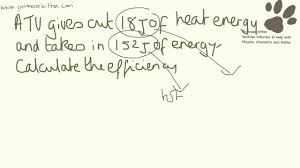 www.primrosekitten.com
A TV gives out 18J of heat energy
and takes in 152J of energy.
Calculate the efficiency
Primrose Kitten
YouTube tutorials to help with
Physics, Chemistry and Maths